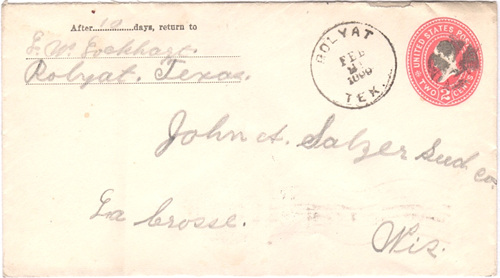 After 10 days, return to
F. W. Lockhart.
Rolyat, Texas.
ROLYAT
FEB
1900
TEX.
UNITED STATES POSTAGE
TWO CENTS
2
John A. Salzer Seed co.
La Crosse.
Wis.